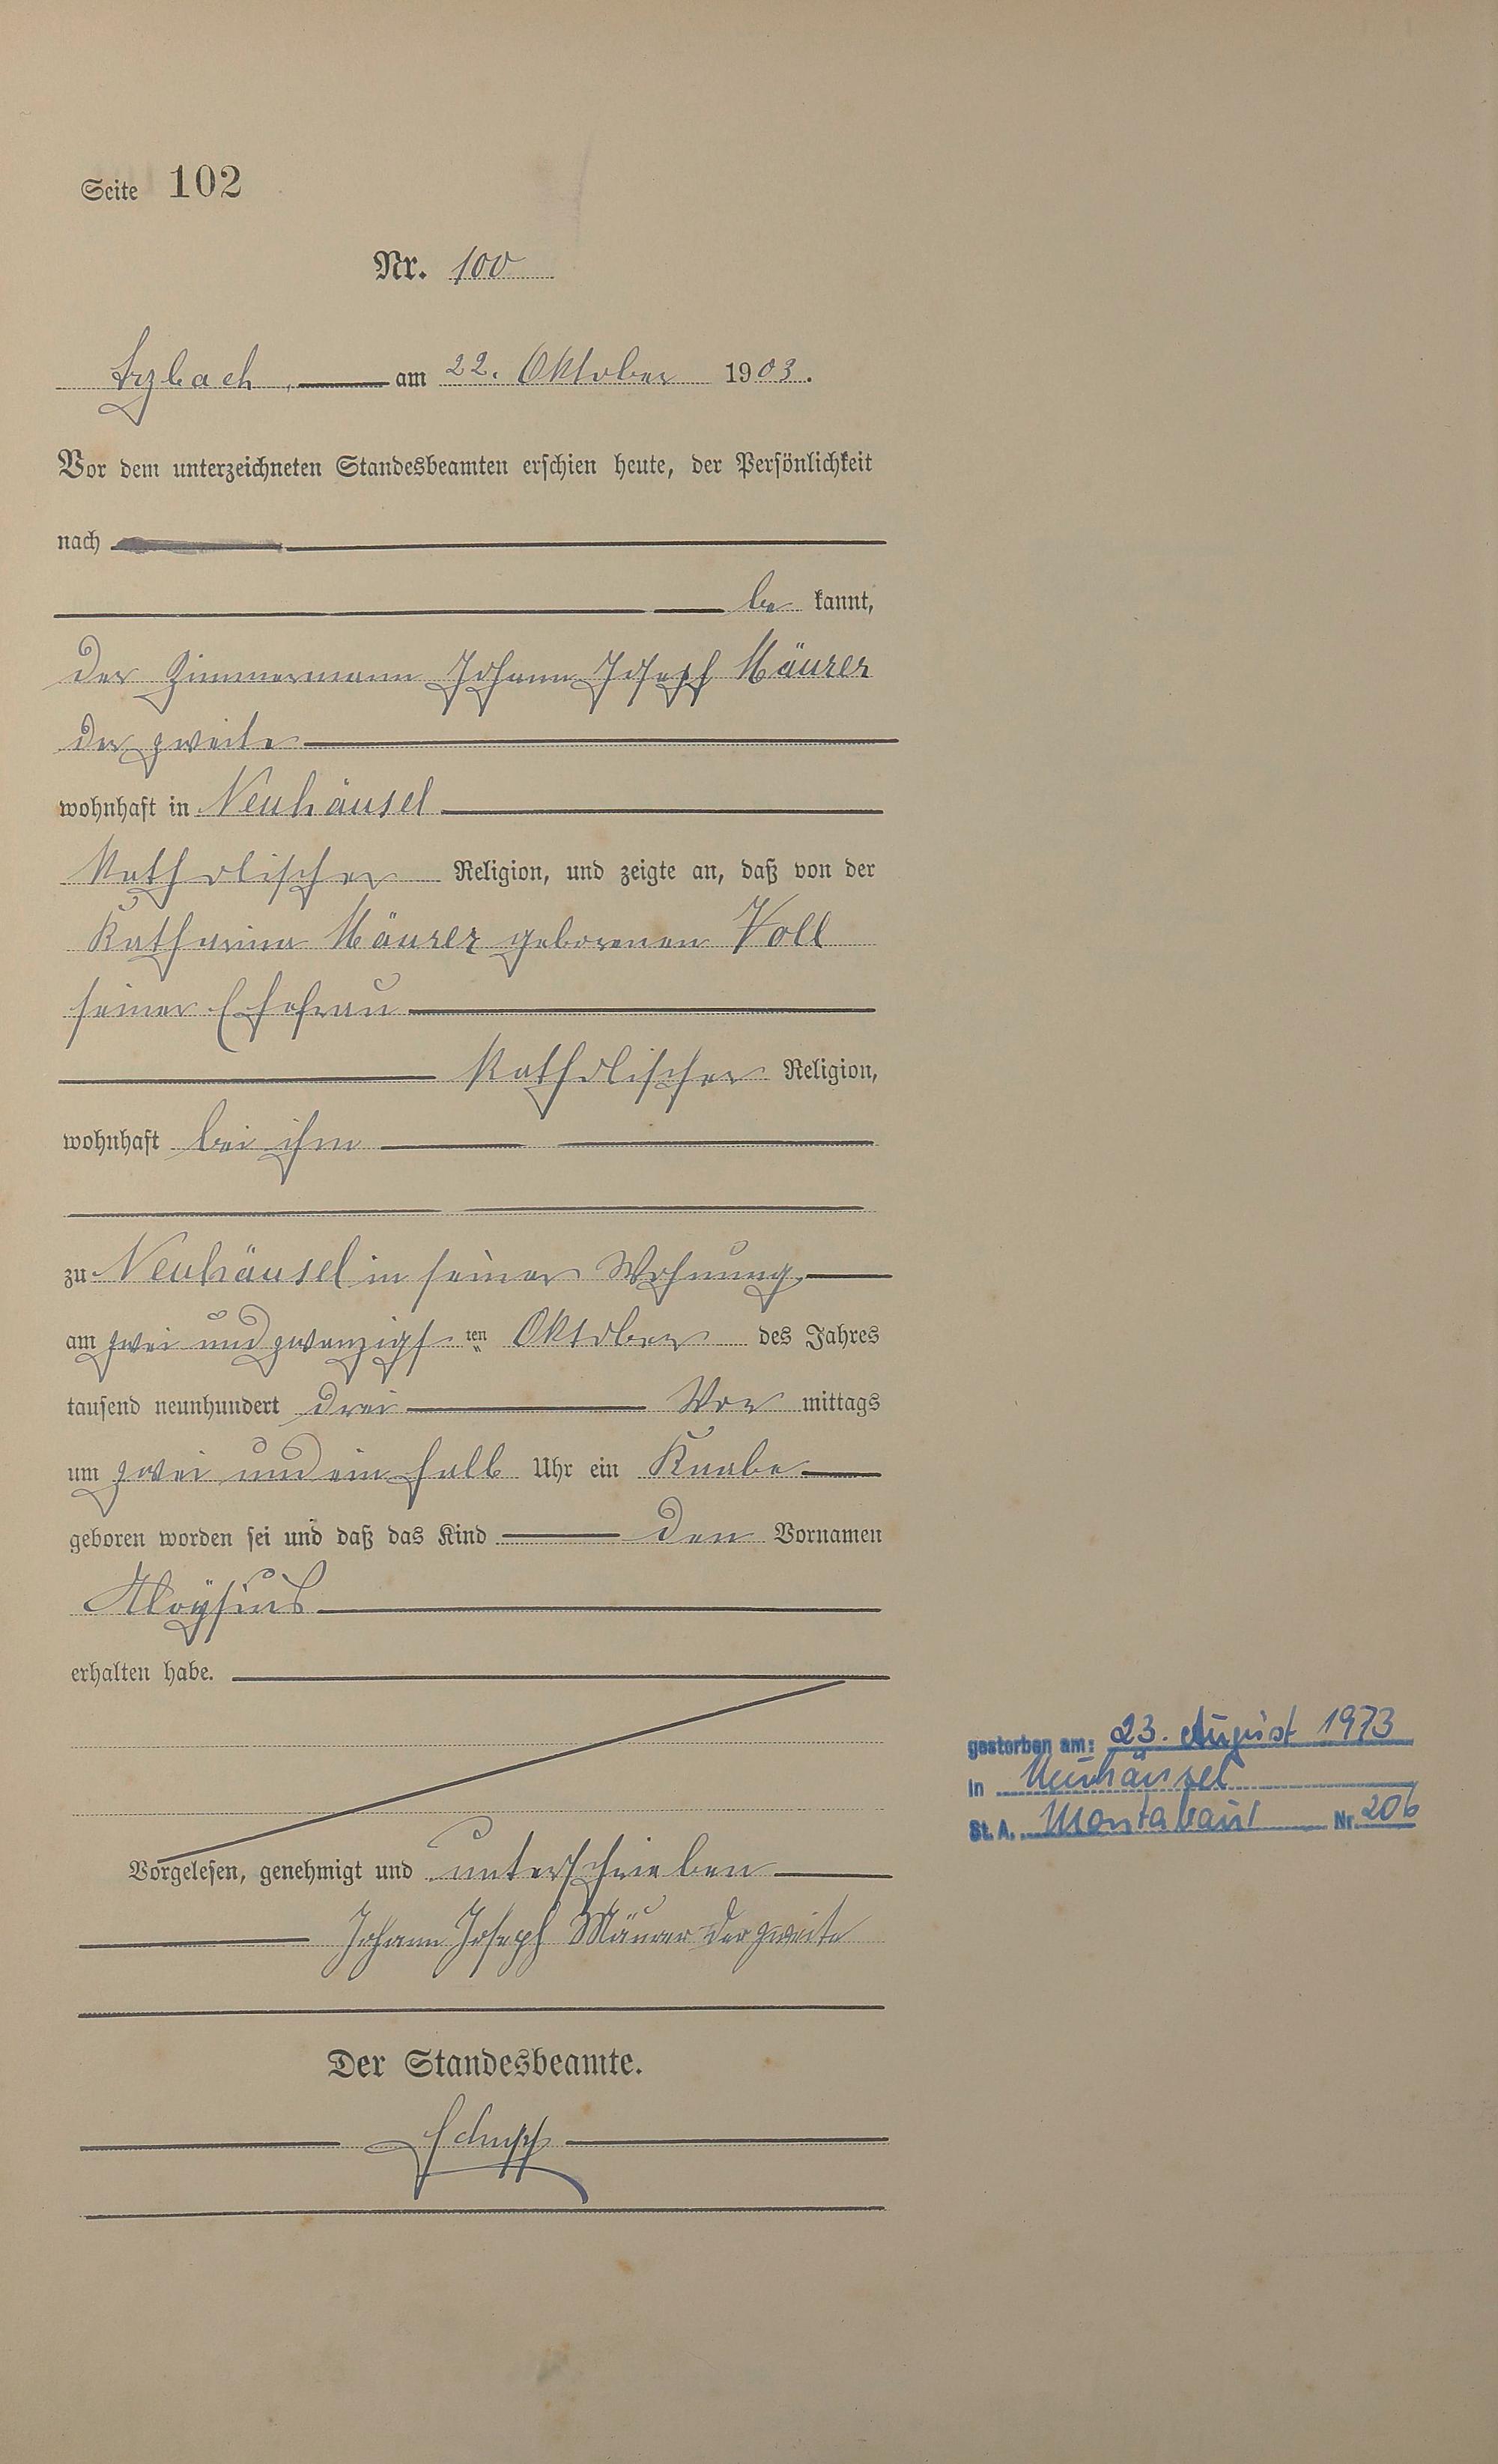 Seite 102
Nr. 100
Arzbach, am 22. Oktober 1903.
Vor dem unterzeichneten Standesbeamten erschien heute, der Persönlichkeit
nach
be kannt,
der Zimmermann Johann Joseph Mäurer
der zweite
wohnhaft in Neuhäusel
katholischer Religion, und zeigte an, daß von der
Katharina Mäurer geborenen Voll
seiner Ehefrau
katholischer Religion,
wohnhaft bei ihm
zu Neuhäusel in seiner Wohnung
am zwei und zwanzigsten Oktober des Jahres
tausend neunhundert drei Vor mittags
um zwei und ein halb Uhr ein Knabe
geboren worden sei und daß das Kind den Vornamen
Aloÿsius
erhalten habe.
Vorgelesen, genehmigt und unterschrieben
Johann Joseph Mäurer der zweite
Der Standesbeamte.
Schupp
gestorben am: 23. August 1973
in Neuhäusel
St. A. Montabaur Nr. 206